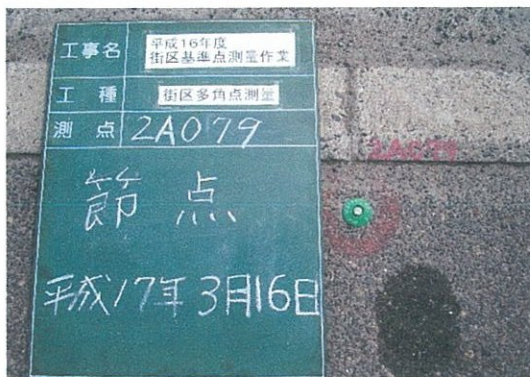 工事名 平成16年度
街区基準点測量作業
工種 街区多角点測量
測点 2A079
節点
平成17年3月16日
2A079